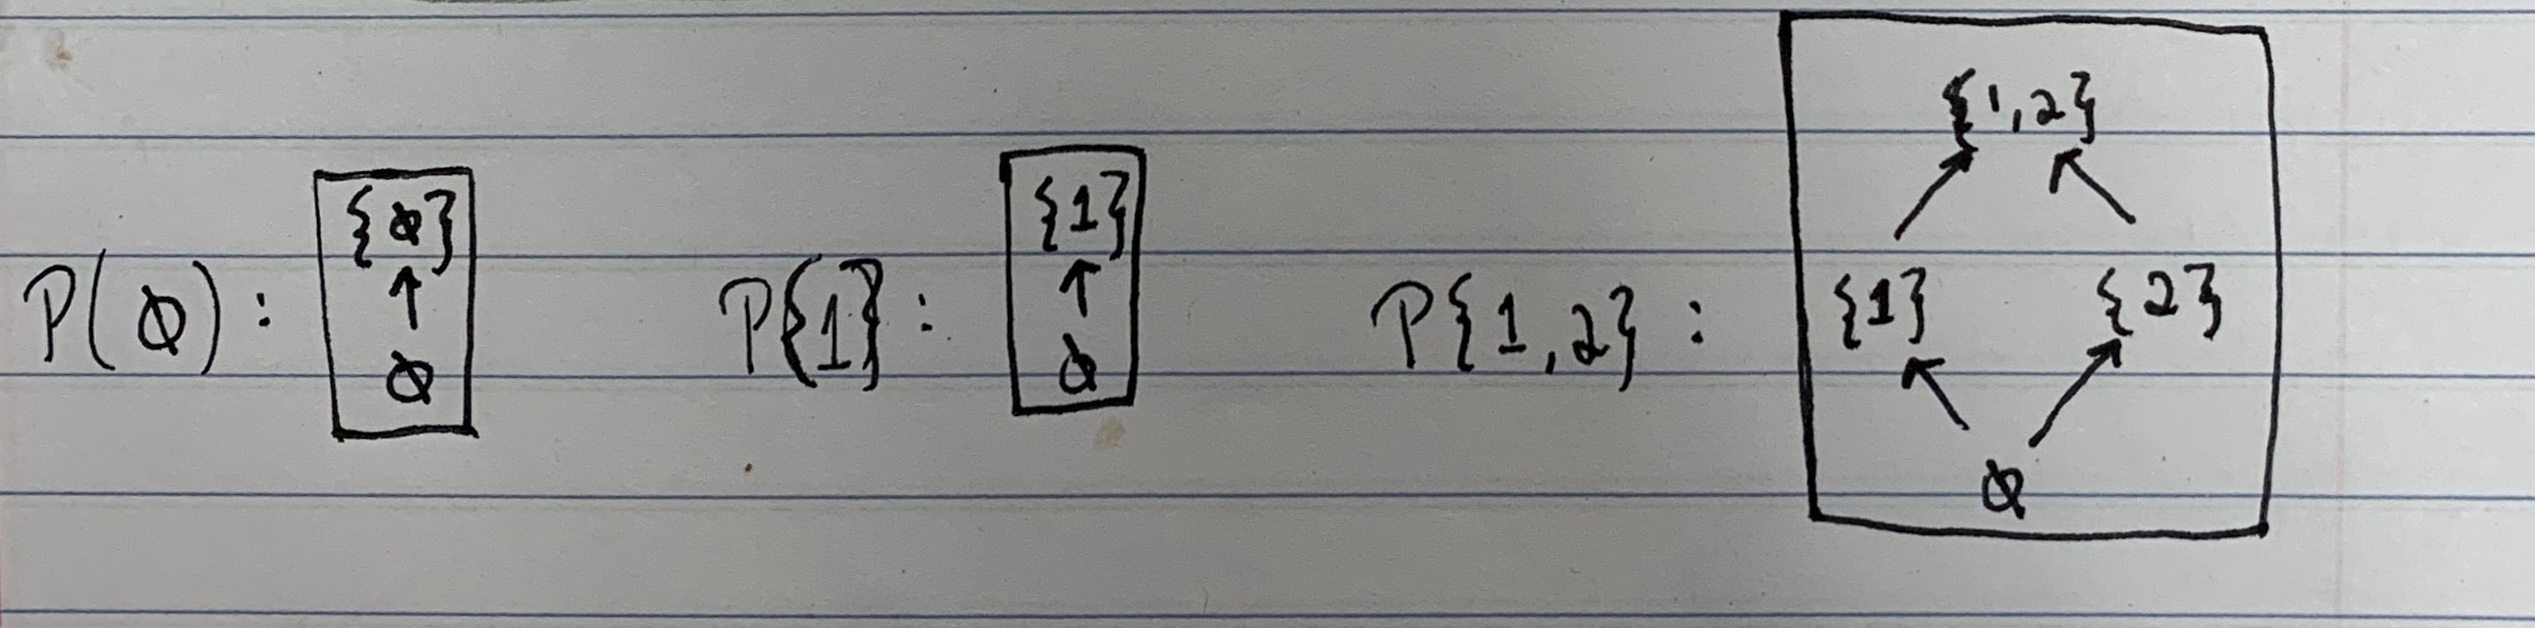 P(∅): {∅} ↑ ∅
P{1}: {1} ↑ ∅
P{1,2}: {1,2}
{1} {2}
∅